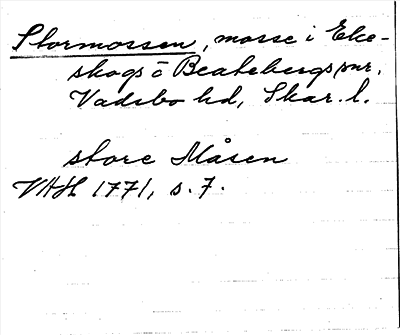 Stormossen, mosse i Eke-
skogs o Beatebergs snr,
Vadsbo hd, Skar. l.
store Måsen
VHH 1771, s. 7.